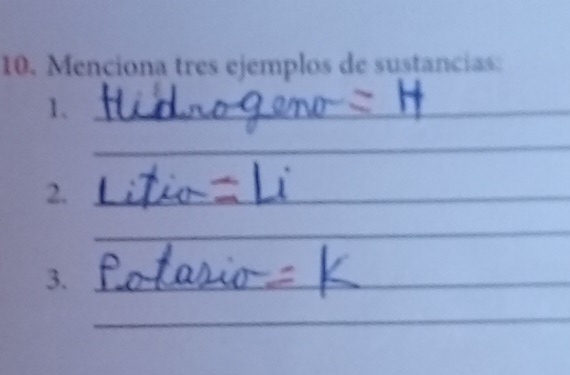 10. Menciona tres ejemplos de sustancias:
1. Hidrogeno = H
2. Litio = Li
3. Potasio = K